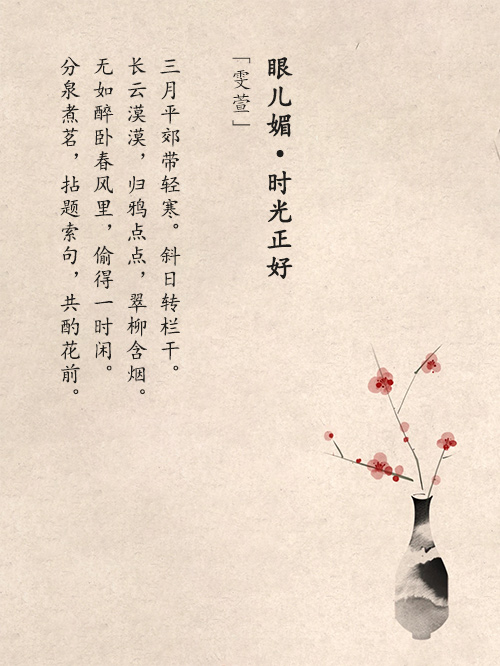 眼儿媚·时光正好
「雯萱」
三月平郊带轻寒。斜日转栏干。
长云漠漠，归鸦点点，翠柳含烟。
无如醉卧春风里，偷得一时闲。
分泉煮茗，拈题索句，共酌花前。